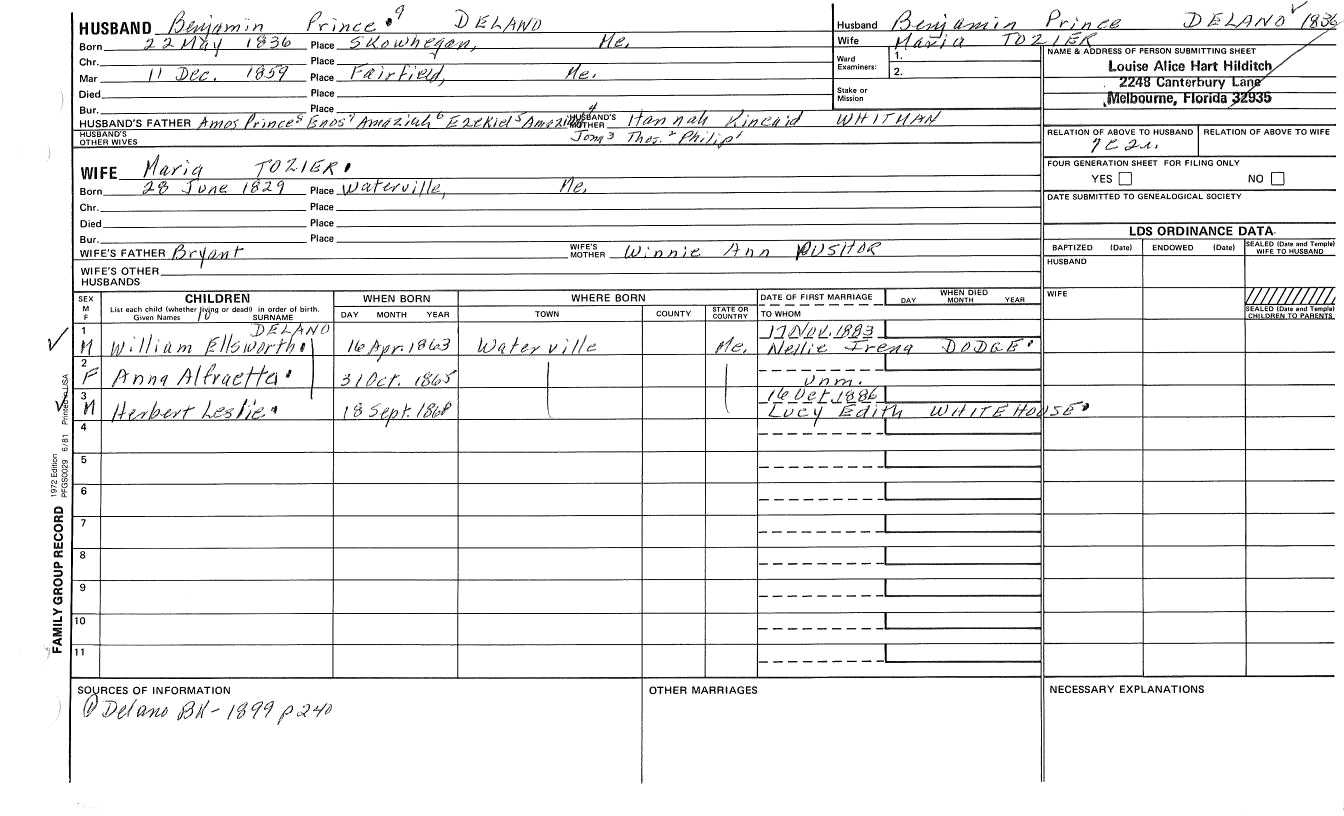 HUSBAND Benjamin Prince 9 DELANO
Born 22 May 1836 Place Skowhegan, Me.
Chr. Place
Mar 11 Dec. 1859 Place Fairfield, Me.
Died Place
Bur. Place
HUSBAND'S FATHER Amos Prince8 Enos7 Amaziah6 Ezekiel5 Amaziah4 HUSBAND'S MOTHER Hannah Kincaid WHITMAN
HUSBAND'S OTHER WIVES Jona3 Thos.2 Philip1
WIFE Maria TOZIER
Born 28 June 1829 Place Waterville, Me.
Chr. Place
Died Place
Bur. Place
WIFE'S FATHER Bryant WIFE'S MOTHER Winnie Ann
WIFE'S OTHER HUSBANDS
Husband Benjamin Prince DELANO 1836
Wife Maria TOZIER
Ward Examiners: 1.
2.
Stake or Mission
NAME & ADDRESS OF PERSON SUBMITTING SHEET
Louise Alice Hart Hilditch
2248 Canterbury Lane
Melbourne, Florida 32935
RELATION OF ABOVE TO HUSBAND RELATION OF ABOVE TO WIFE
FOUR GENERATION SHEET FOR FILING ONLY
YES NO
DATE SUBMITTED TO GENEALOGICAL SOCIETY
LDS ORDINANCE DATA
BAPTIZED (Date) ENDOWED (Date) SEALED (Date and Temple) WIFE TO HUSBAND
HUSBAND
WIFE
SEALED (Date and Temple) CHILDREN TO PARENTS
SEX M F CHILDREN WHEN BORN WHERE BORN DATE OF FIRST MARRIAGE WHEN DIED
List each child (whether living or dead) in order of birth.
Given Names 10 SURNAME DAY MONTH YEAR TOWN COUNTY STATE OR COUNTRY TO WHOM DAY MONTH YEAR
1 DELANO 17 Nov. 1883
M William Ellsworth 16 Apr. 1863 Waterville Me. Nellie Irena DODGE
2
F Anna Alfraetta 31 Oct. 1865 Unm.
3 16 Oct. 1886
M Herbert Leslie 18 Sept. 1868 Lucy Edith WHITEHOUSE
4
5
6
7
8
9
10
11
SOURCES OF INFORMATION OTHER MARRIAGES NECESSARY EXPLANATIONS
① Delano BK - 1899 p 240
FAMILY GROUP RECORD
1972 Edition
PFGS0029 6/81 Printed in USA